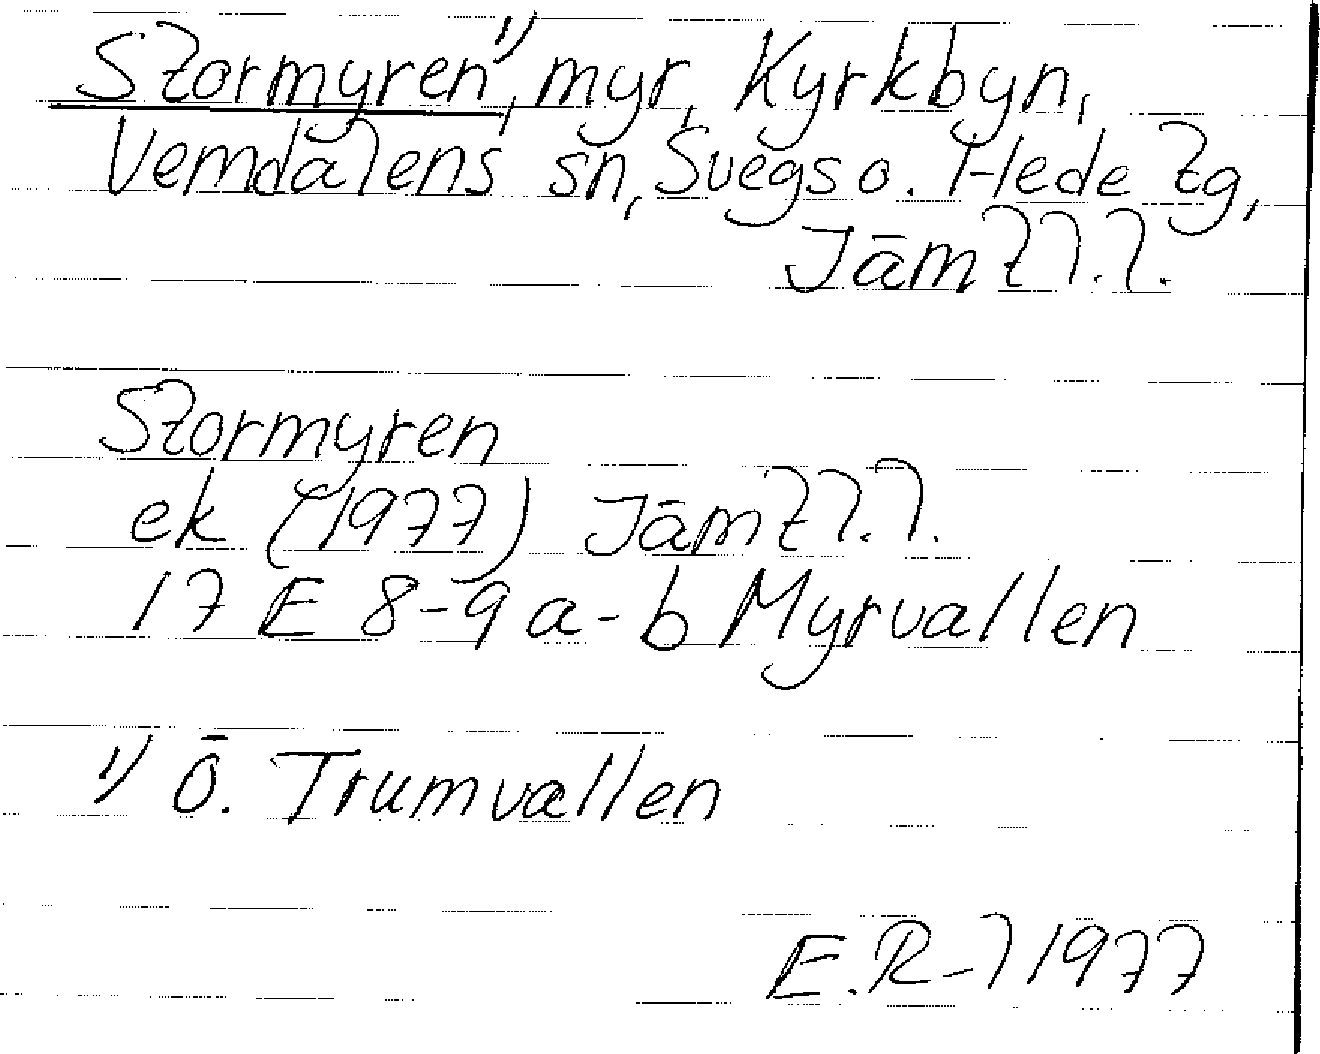 Stormyren¹⁾, myr, Kyrkbyn,
Vemdalens sn, Svegs o. Hede tg,
Jämtl.l.
Stormyren
ek (1977) Jämtl.l.
17 E 8-9 a-b Myrvallen
¹⁾ Ö. Trumvallen
E.R-l 1977